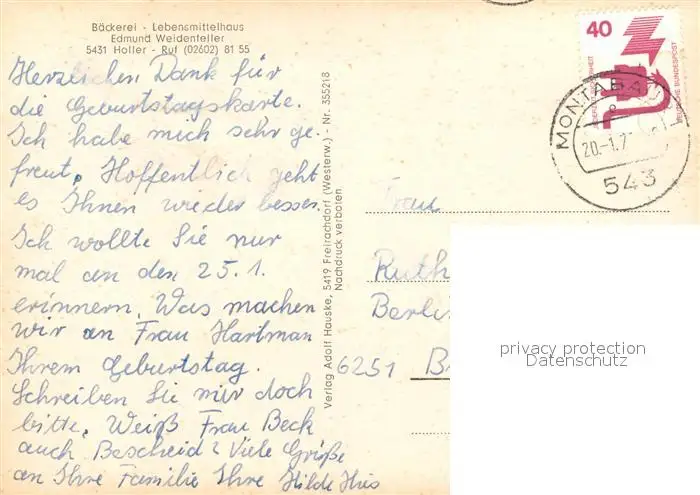 Bäckerei - Lebensmittelhaus
Edmund Weidenfeller
5431 Holler - Ruf (02602) 81 55
Herzlichen Dank für
die Geburtstagskarte.
Ich habe mich sehr ge-
freut. Hoffentlich geht
es Ihnen wieder besser.
Ich wollte Sie nur
mal an den 25.1.
erinnern. Was machen
wir an Frau Hartman
Ihrem Geburtstag.
Schreiben Sie mir doch
bitte. Weiß Frau Beck
auch Bescheid? Viele Grüße
an Ihre Familie Ihre Hilde
Verlag Adolf Hauske, 5419 Freirachdorf (Westerw.) - Nr. 355218
Nachdruck verboten
40
DEUTSCHE BUNDESPOST
MONTABAUR
20.-1.7
543
Frau
Ruth
Berli
6251 B
privacy protection
Datenschutz